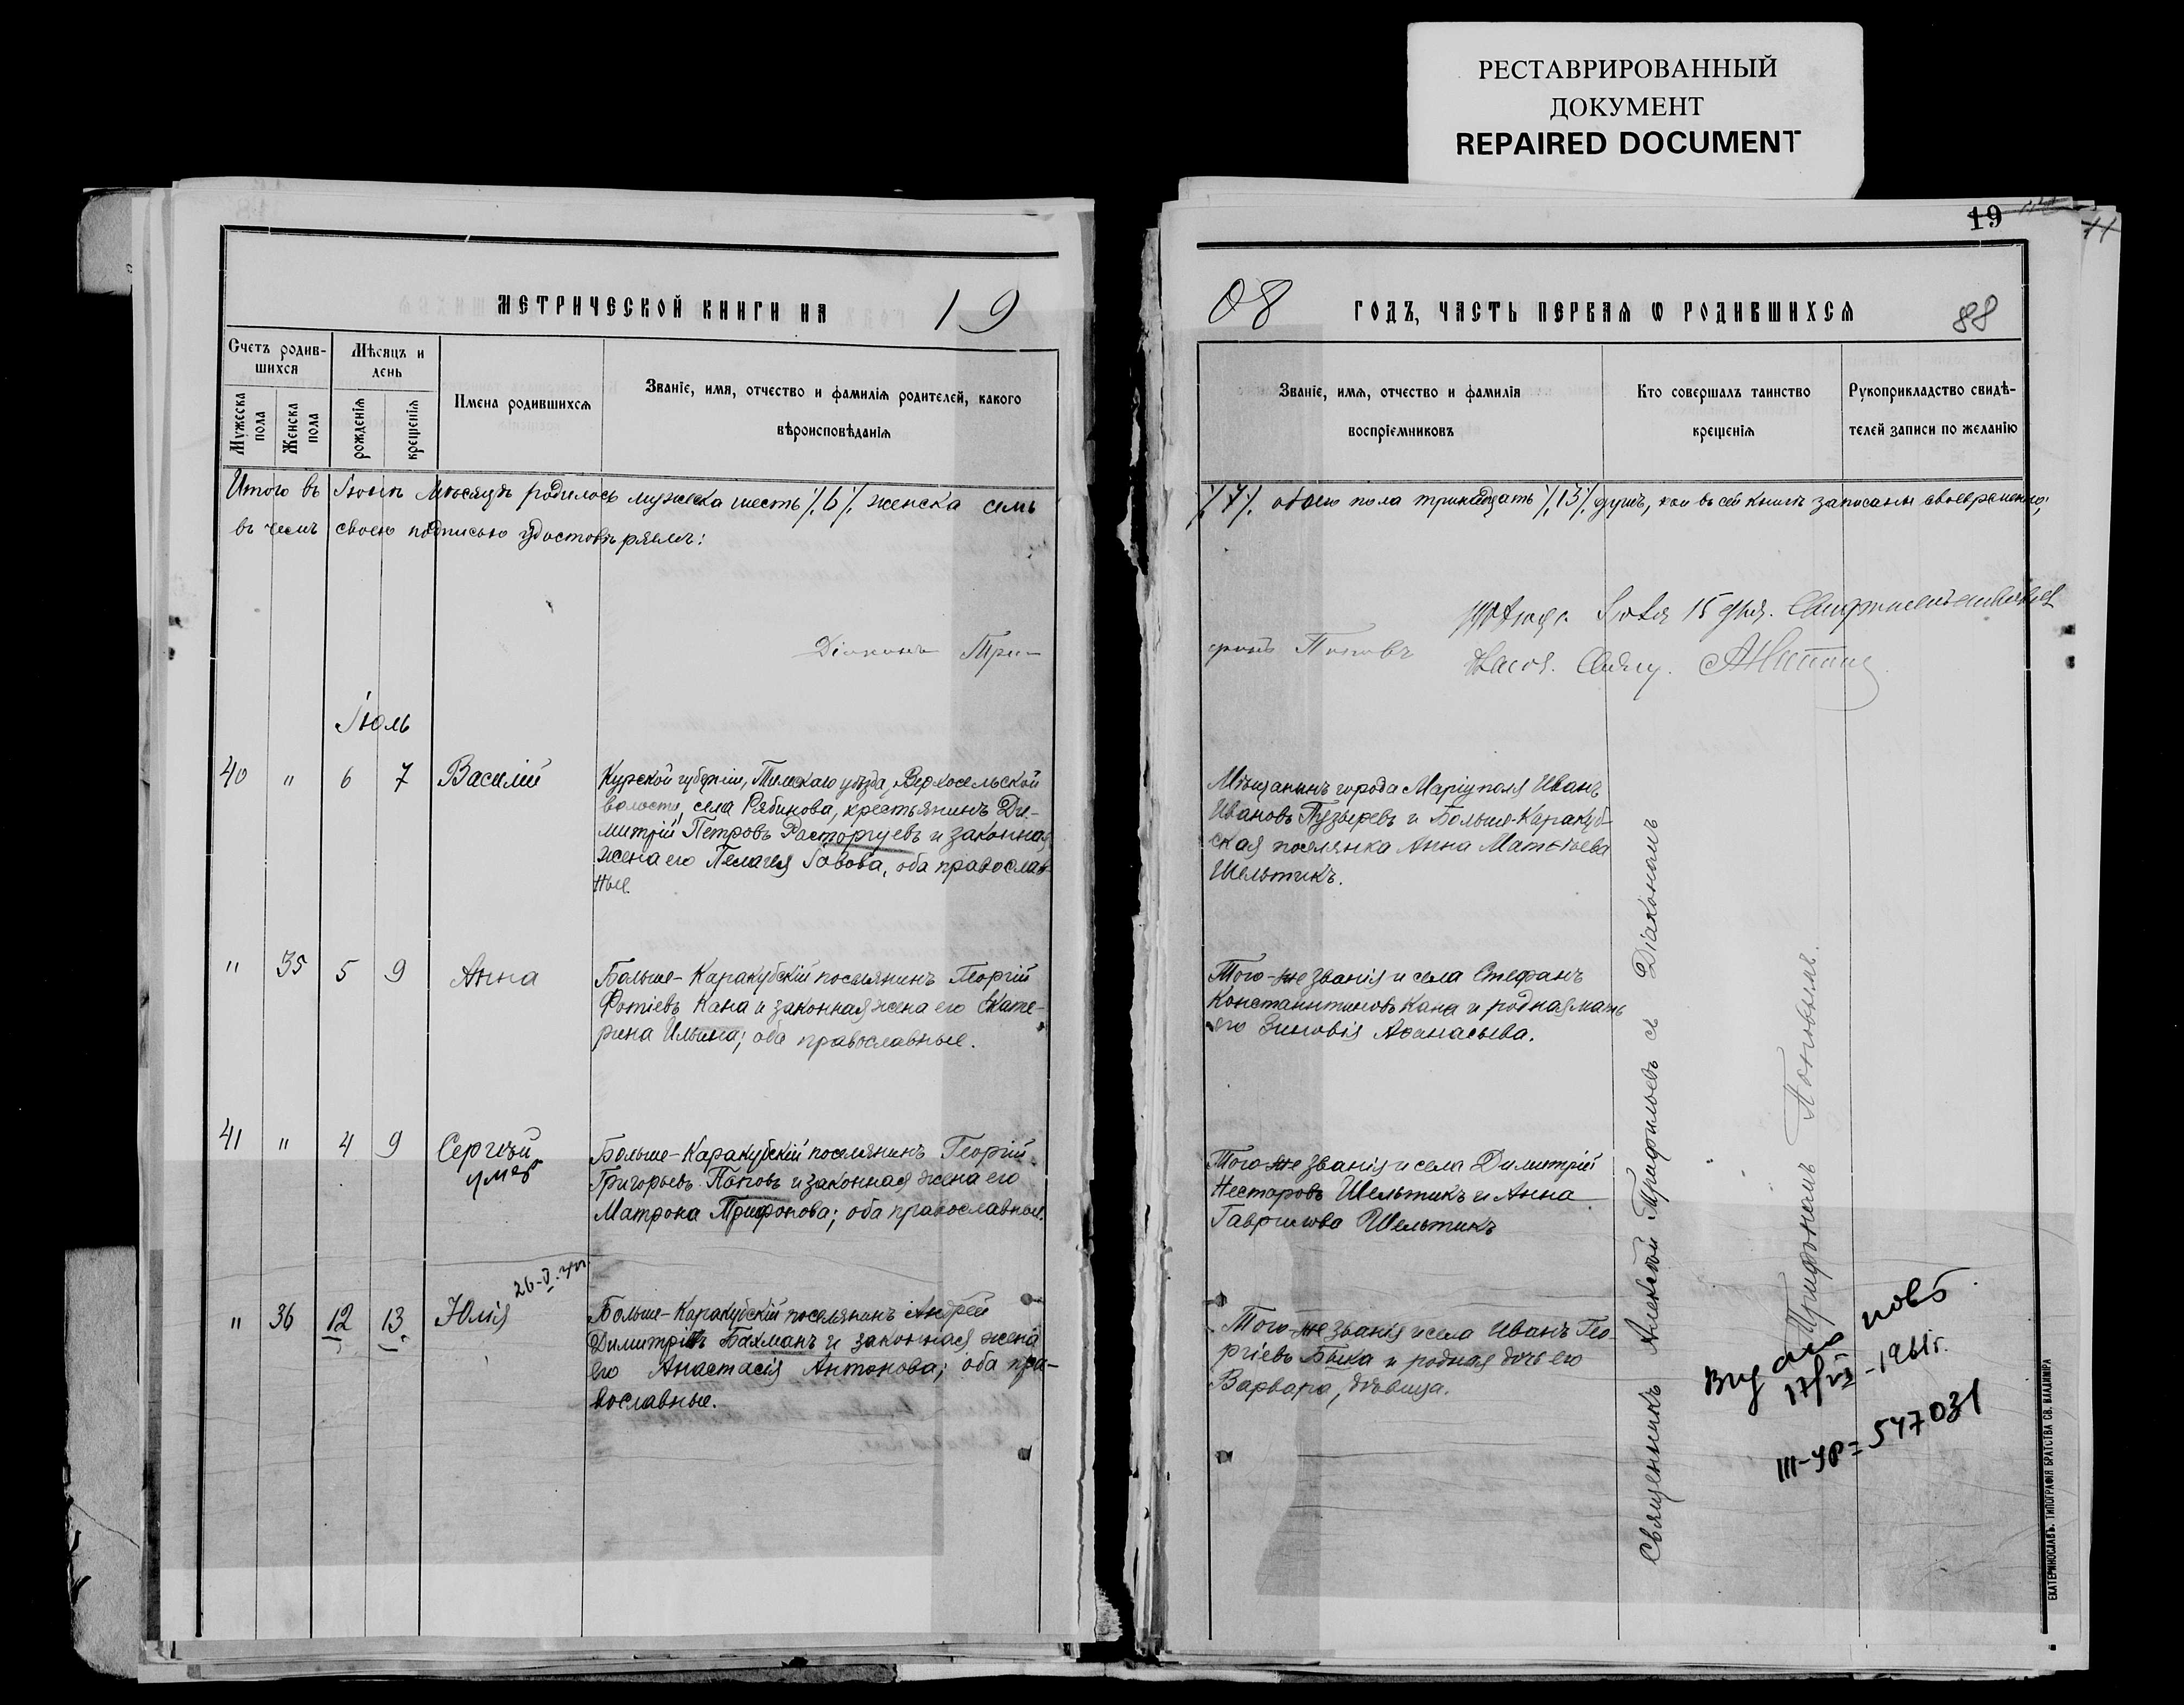 РЕСТАВРИРОВАННЫЙ
ДОКУМЕНТ
REPAIRED DOCUMENT
МЕТРИЧЕСКОЙ КНИГИ НА 19
Счетъ родив-
шихся
Мѣсяцъ и
день
Мужеска
пола
Женска
пола
рожденія
крещенія
Имена родившихся
Званіе, имя, отчество и фамилія родителей, какого
вѣроисповѣданія
Итого въ Іюнѣ мѣсяцѣ родилось мужеска шесть /6/ женска семь
въ чемъ своею подписью удостовѣряемъ:
Діаконъ Три-
Іюль
40 " 6 7 Василій
Курской губерніи, Тимскаго уѣзда, Верхосельской
волости, села Рябинова, крестьянинъ Ди-
митрій Петровъ Расторгуевъ и законная
жена его Пелагея Іовова, оба православ-
ные.
" 35 5 9 Анна
Больше-Каракубскій поселянинъ Георгій
Фотіевъ Кана и законная жена его Екате-
рина Ильина; оба православные.
41 " 4 9 Сергѣй
умер
Больше-Каракубскій поселянинъ Георгій
Григорьевъ Поповъ и законная жена его
Матрона Трифонова; оба православные.
" 36 12 13 Юлія
26-V
Больше-Каракубскій поселянинъ Андрей
Димитріевъ Бахманъ и законная жена
его Анастасія Антонова; оба пра-
вославные.
19
88
08 ГОДЪ, ЧАСТЬ ПЕРВАЯ Ѡ РОДИВШИХСЯ
Званіе, имя, отчество и фамилія
воспріемниковъ
Кто совершалъ таинство
крещенія
Рукоприкладство свидѣ-
телей записи по желанію
/7/. обоего пола тринадцать /13/ душъ, кои въ сей книгѣ записаны своевременно;
Іюля 15 дня.
фонъ Поповъ
Мѣщанинъ города Маріуполя Иванъ
Ивановъ Пузыревъ и Больше-Каракуб-
ская поселянка Анна Матѳѣева
Шельтикъ.
Того-же званія и села Стефанъ
Константиновъ Кана и родная мать
его Зиновія Аѳанасьева.
Того-же званія и села Димитрій
Несторовъ Шельтикъ и Анна
Гаврилова Шельтикъ
Того-же званія и села Иванъ Гео-
ргіевъ Быка и родная дочь его
Варвара, дѣвица.
Священникъ Алексѣй Трифильевъ съ Діакономъ
Трифономъ Поповымъ.
Выдано повт
17/VI-1961г.
III-УР= 547031
ЕКАТЕРИНОСЛАВЪ. ТИПОГРАФІЯ БРАТСТВА СВ. ВЛАДИМІРА